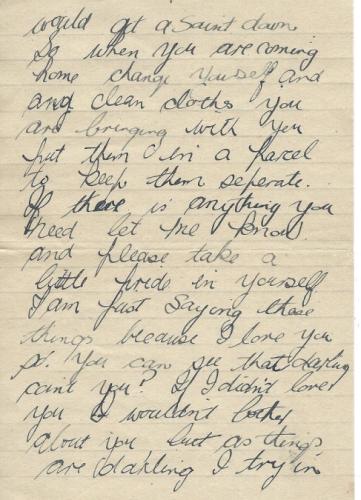 would get a Saint down
So when you are coming
home change yourself and
and clean cloths you
are bringing with you
put them in a parcel
to keep them seperate.
If there is anything you
need let me know
and please take a
little pride in yourself
I am just saying these
things because I love you
so. you can see that darling
cant you? If I didn't love
you I wouldn't bother
about you but as things
are darling I try in